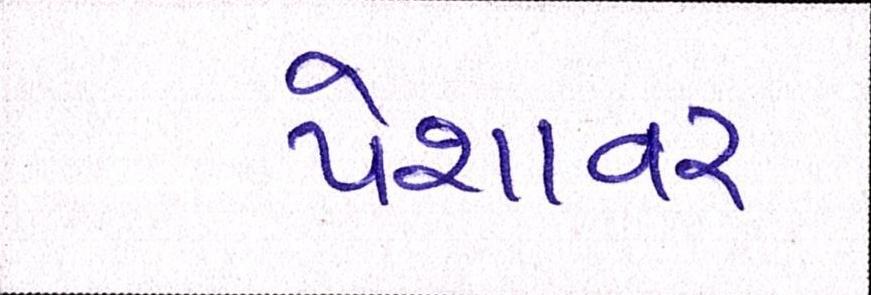 પેશાવર